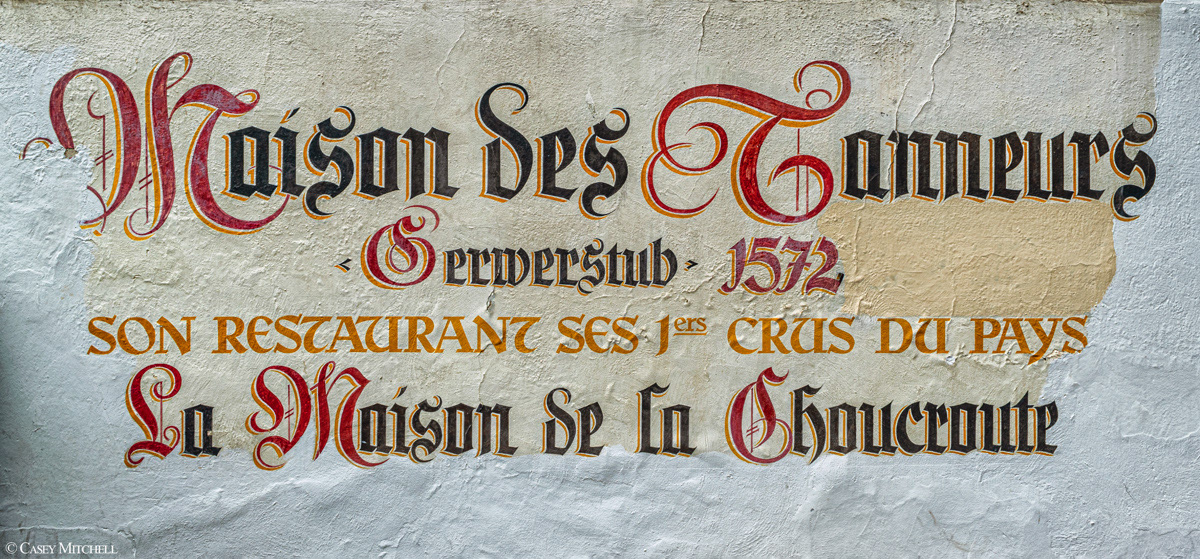 Maison des Tanneurs
‹ Gerwerstub › 1572
SON RESTAURANT SES 1ers CRUS DU PAYS
La Maison de la Choucroute
© CASEY MITCHELL